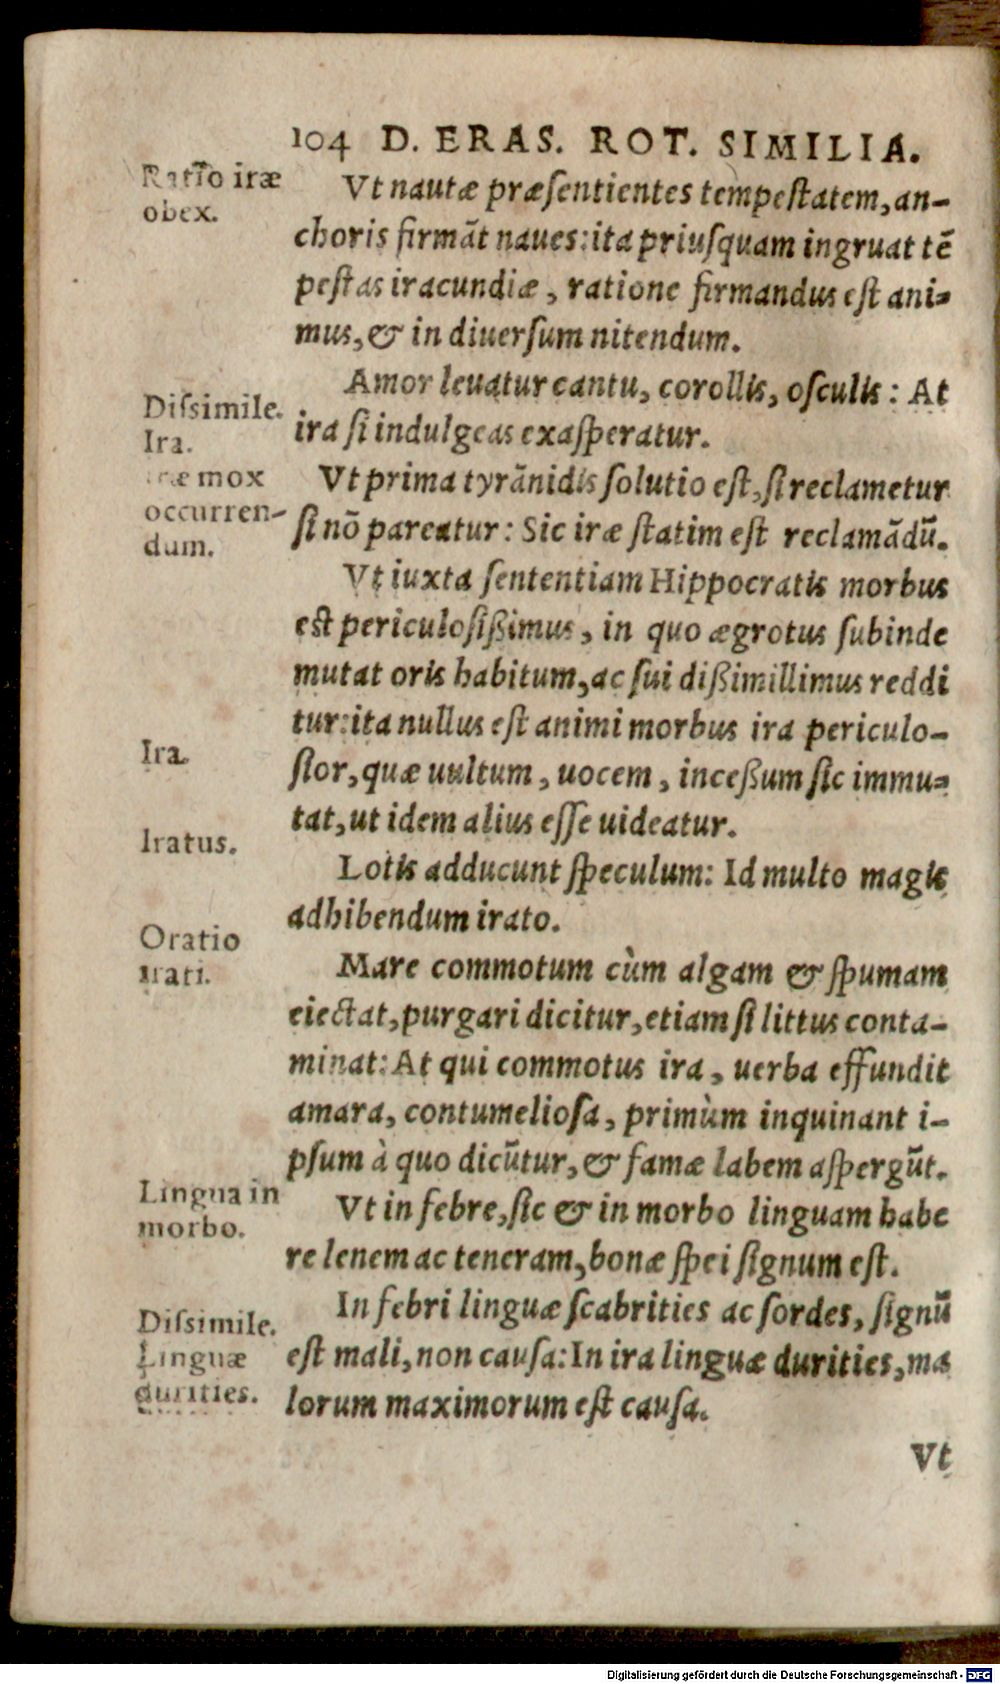 104 D. ERAS. ROT. SIMILIA.
Ratio iræ
obex.
Vt nautæ præſentientes tempeſtatem, an-
choris firmãt naues: ita priuſquam ingruat tẽ
peſtas iracundiæ, ratione firmandus eſt ani-
mus, & in diuerſum nitendum.
Diſsimile.
Ira.
Amor leuatur cantu, corollis, oſculis: At
ira ſi indulgeas exaſperatur.
iræ mox
occurren-
dum.
Vt prima tyrãnidis ſolutio eſt, ſi reclametur
ſi nõ pareatur: Sic iræ ſtatim eſt reclamãdũ.
Vt iuxta ſententiam Hippocratis morbus
eſt periculoſißimus, in quo ægrotus ſubinde
mutat oris habitum, ac ſui dißimillimus reddi
tur: ita nullus eſt animi morbus ira periculo-
Ira.
ſior, quæ uultum, uocem, inceßum ſic immu-
tat, ut idem alius eſſe uideatur.
Iratus.
Lotis adducunt ſpeculum: Id multo magis
adhibendum irato.
Oratio
irati.
Mare commotum cùm algam & ſpumam
eiectat, purgari dicitur, etiam ſi littus conta-
minat: At qui commotus ira, uerba effundit
amara, contumelioſa, primùm inquinant i-
pſum à quo dicũtur, & famæ labem aſpergũt.
Lingua in
morbo.
Vt in febre, ſic & in morbo linguam habe
re lenem ac teneram, bonæ ſpei ſignum eſt.
Diſsimile.
Linguæ
durities.
In febri linguæ ſcabrities ac ſordes, ſignũ
eſt mali, non cauſa: In ira linguæ durities, ma
lorum maximorum eſt cauſa.
Vt
Digitalisierung gefördert durch die Deutsche Forschungsgemeinschaft - DFG